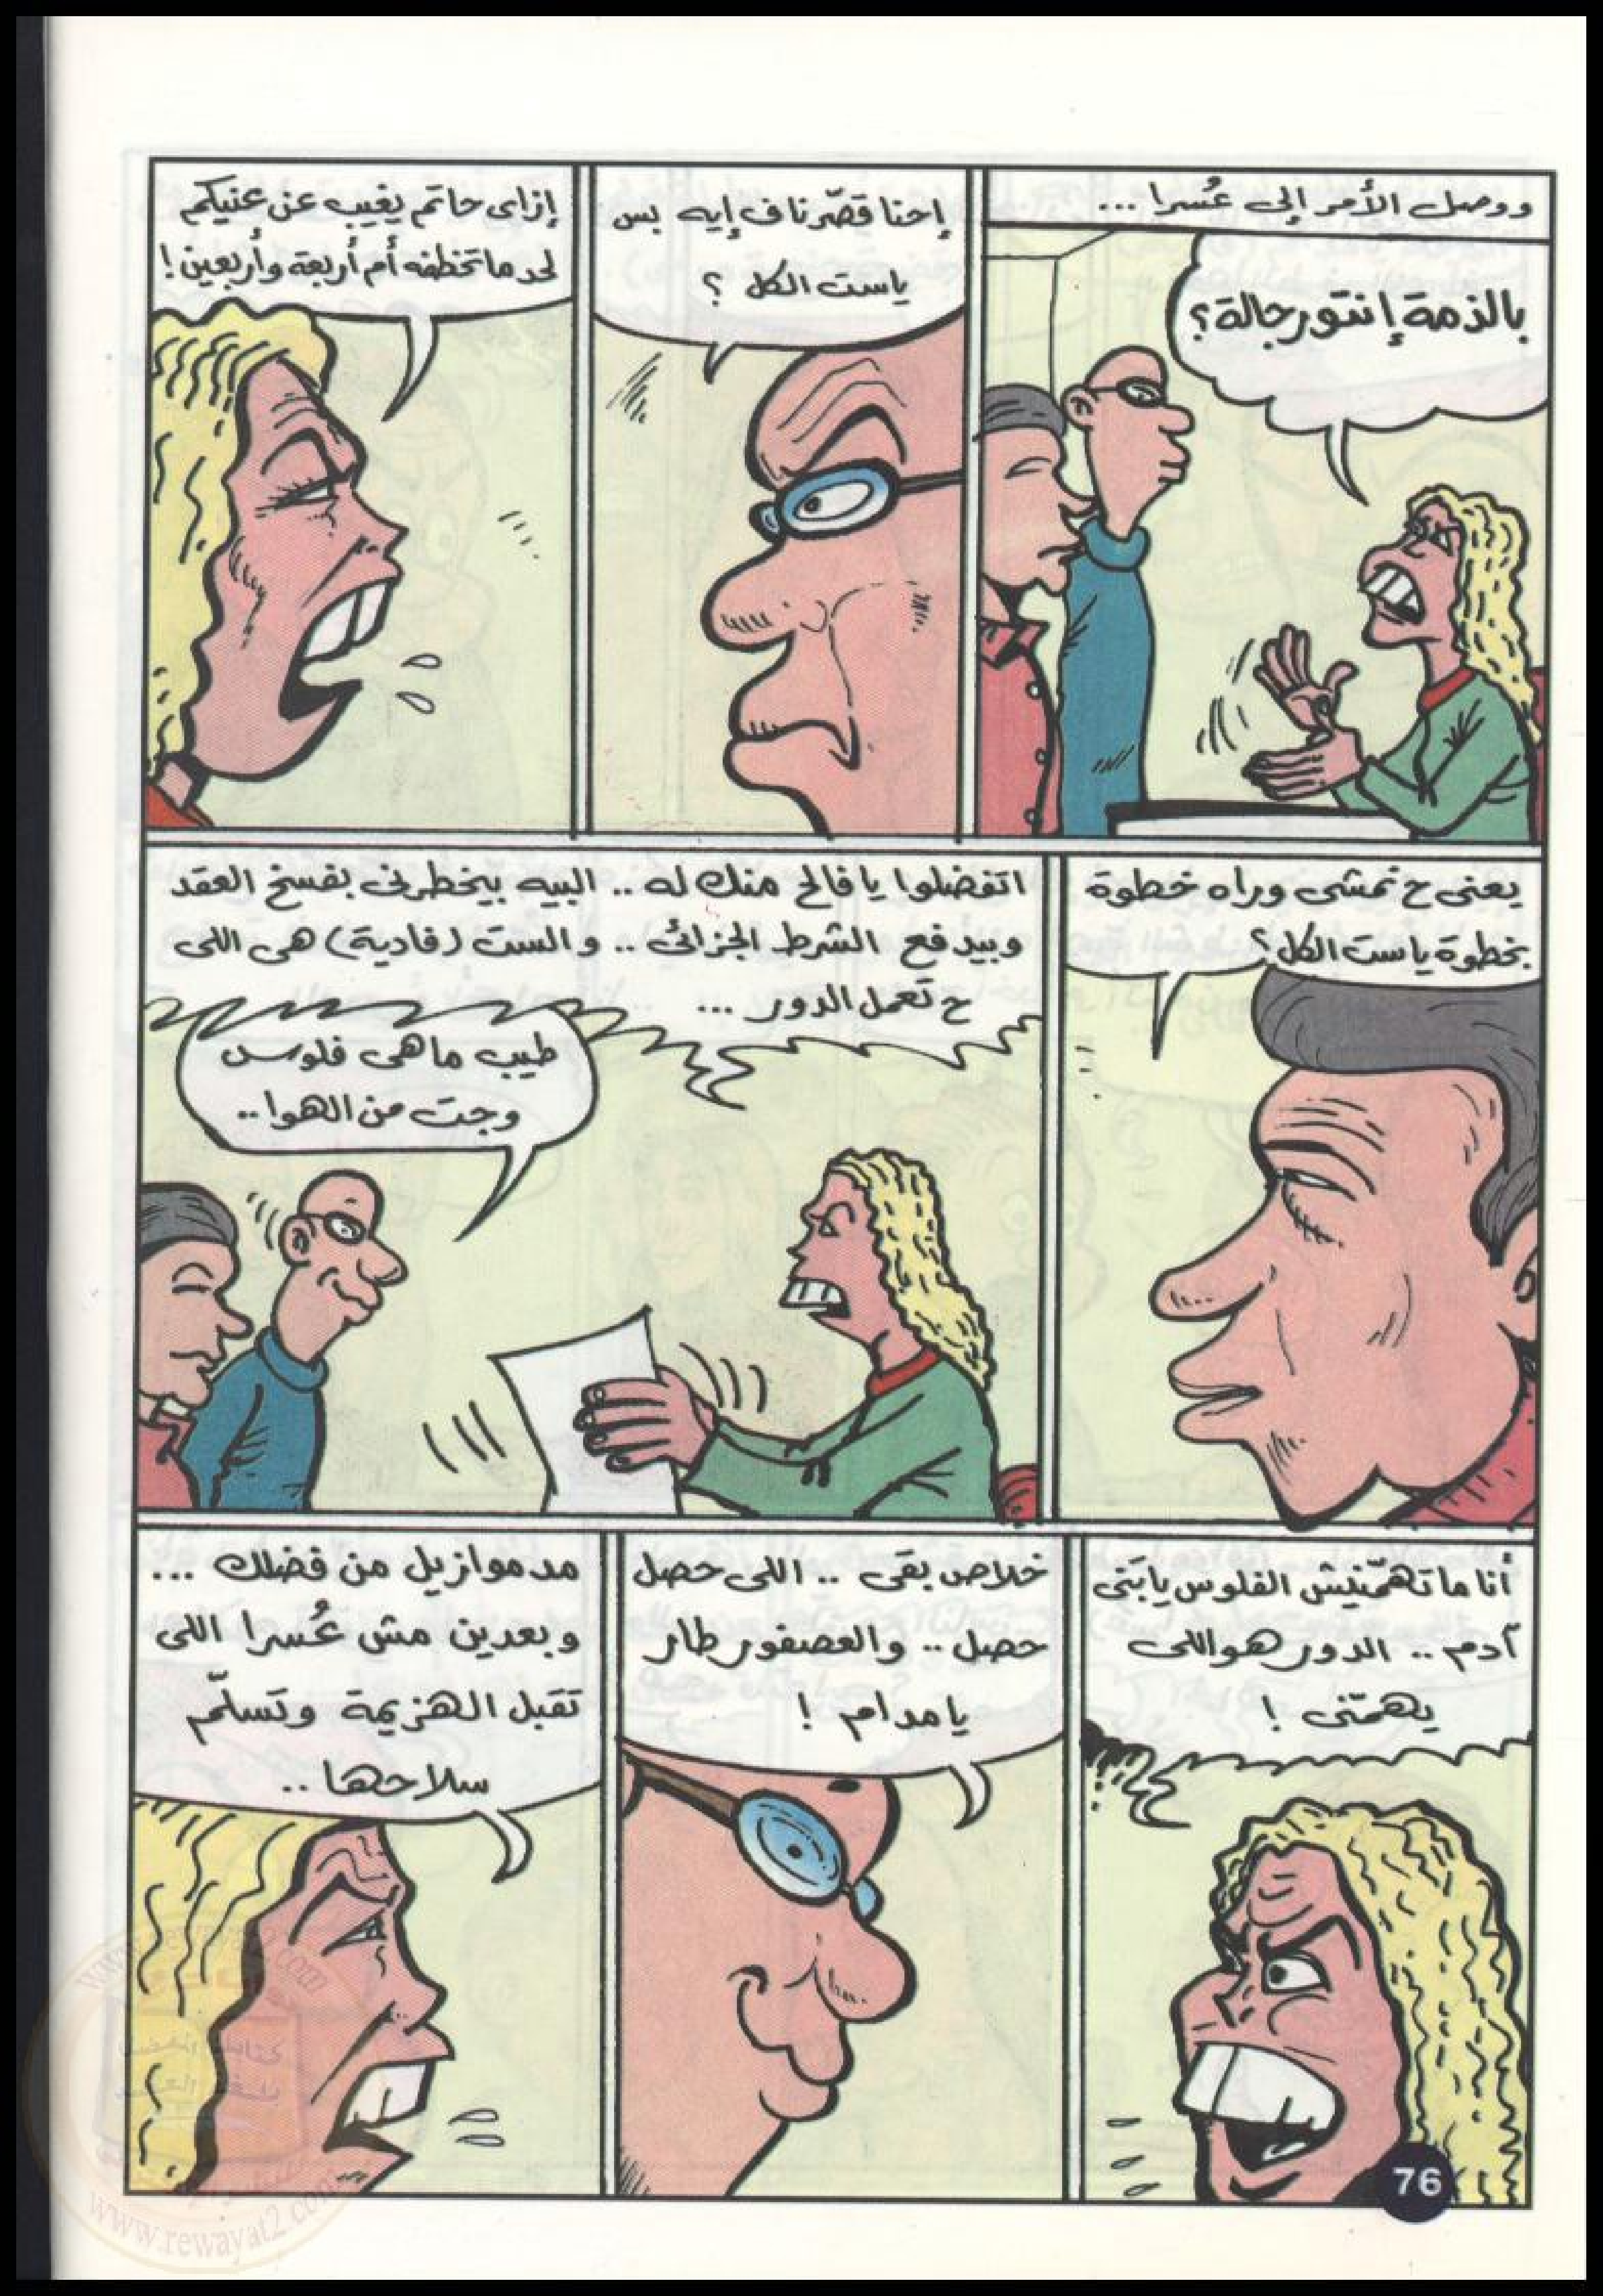 ووصل الأمر إلى عُسرا ...
بالذمة إنتو رجالة؟
إحنا قصّرنا ف إيه بس
ياست الكل ؟
إزاى حاتم يغيب عن عنيكم
لحد ما تخطفه أم أربعة وأربعين !
يعنى ح نمشى وراه خطوة
بخطوة ياست الكل ؟
اتفضلوا يا فالح منك له .. البيه بيخطرنى بفسخ العقد
وبيدفع الشرط الجزائى .. والست (فادية) هى اللى
ح تعمل الدور ...
طيب ما هى فلوس
وجت من الهوا ..
أنا ما تهمّنيش الفلوس يا بَنى
آدم .. الدور هو اللى
يهمّنى !
خلاص بقى .. اللى حصل
حصل .. والعصفور طار
يا مدام !
مدموازيل من فضلك ...
وبعدين مش عُسرا اللى
تقبل الهزيمة وتسلّم
سلاحها ..
76
www.rewayat2.com